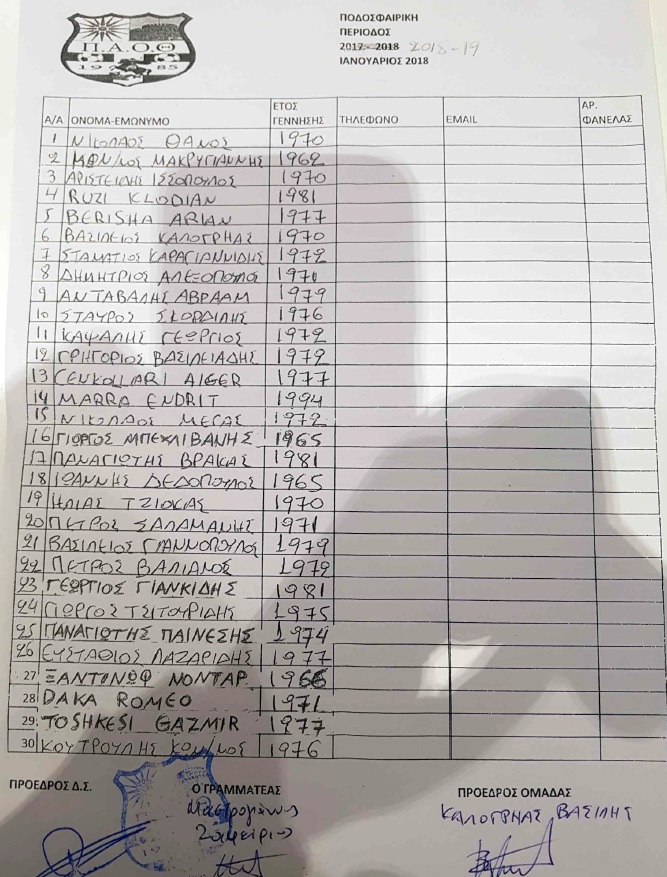 Π.Α.Ο.Θ
19 85
ΠΟΔΟΣΦΑΙΡΙΚΗ
ΠΕΡΙΟΔΟΣ
2017 - 2018 2018-19
ΙΑΝΟΥΑΡΙΟΣ 2018
Α/Α ΟΝΟΜΑ-ΕΜΩΝΥΜΟ ΕΤΟΣ ΓΕΝΝΗΣΗΣ ΤΗΛΕΦΩΝΟ EMAIL ΑΡ. ΦΑΝΕΛΑΣ
1 ΝΙΚΟΛΑΟΣ ΘΑΝΟΣ 1970
2 ΜΑΚΡΥΓΙΑΝΝΗΣ 1962
3 ΑΡΙΣΤΕΙΔΗΣ ΙΣΣΟΠΟΥΛΟΣ 1970
4 RUZI KLODIAN 1981
5 BERISHA ARIAN 1977
6 ΒΑΣΙΛΕΙΟΣ ΚΑΛΟΓΡΗΑΣ 1970
7 ΣΤΑΜΑΤΙΟΣ ΚΑΡΑΓΙΑΝΝΙΔΗΣ 1972
8 ΔΗΜΗΤΡΙΟΣ ΑΛΕΞΟΠΟΥΛΟΣ 1970
9 ΑΝΤΑΒΑΛΗΣ ΑΒΡΑΑΜ 1979
10 ΣΤΑΥΡΟΣ ΣΚΟΡΔΙΛΗΣ 1976
11 ΚΑΨΑΛΗΣ ΓΕΩΡΓΙΟΣ 1972
12 ΓΡΗΓΟΡΙΟΣ ΒΑΣΙΛΕΙΑΔΗΣ 1972
13 CENKOLLARI AIGER 1977
14 MARRA ENDRIT 1994
15 ΝΙΚΟΛΑΟΣ ΜΕΓΑΣ 1972
16 ΓΙΩΡΓΟΣ ΜΠΕΧΛΙΒΑΝΗΣ 1965
17 ΠΑΝΑΓΙΩΤΗΣ ΒΡΑΚΑΣ 1981
18 ΙΩΑΝΝΗΣ ΔΕΔΟΠΟΥΛΟΣ 1965
19 ΗΛΙΑΣ ΤΖΙΟΚΑΣ 1970
20 ΠΕΤΡΟΣ ΣΑΛΑΜΑΝΗΣ 1971
21 ΒΑΣΙΛΕΙΟΣ ΓΙΑΝΝΟΠΟΥΛΟΣ 1979
22 ΠΕΤΡΟΣ ΒΑΛΙΑΝΟΣ 1972
23 ΓΕΩΡΓΙΟΣ ΓΙΑΝΚΙΔΗΣ 1981
24 ΓΙΩΡΓΟΣ ΤΣΙΤΟΥΡΙΔΗΣ 1975
25 ΠΑΝΑΓΙΩΤΗΣ ΠΑΙΝΕΣΗΣ 1974
26 ΕΥΣΤΑΘΙΟΣ ΛΑΖΑΡΙΔΗΣ 1977
27 ΞΑΝΤΟΝΩΦ ΝΟΝΤΑΡ 1966
28 DAKA ROMEO 1971
29 TOSHKESI GAZMIR 1977
30 ΚΟΥΤΡΟΥΛΗΣ ΚΩΝ/ΝΟΣ 1976
ΠΡΟΕΔΡΟΣ Δ.Σ. Ο ΓΡΑΜΜΑΤΕΑΣ ΠΡΟΕΔΡΟΣ ΟΜΑΔΑΣ
ΚΑΛΟΓΡΗΑΣ ΒΑΣΙΛΗΣ